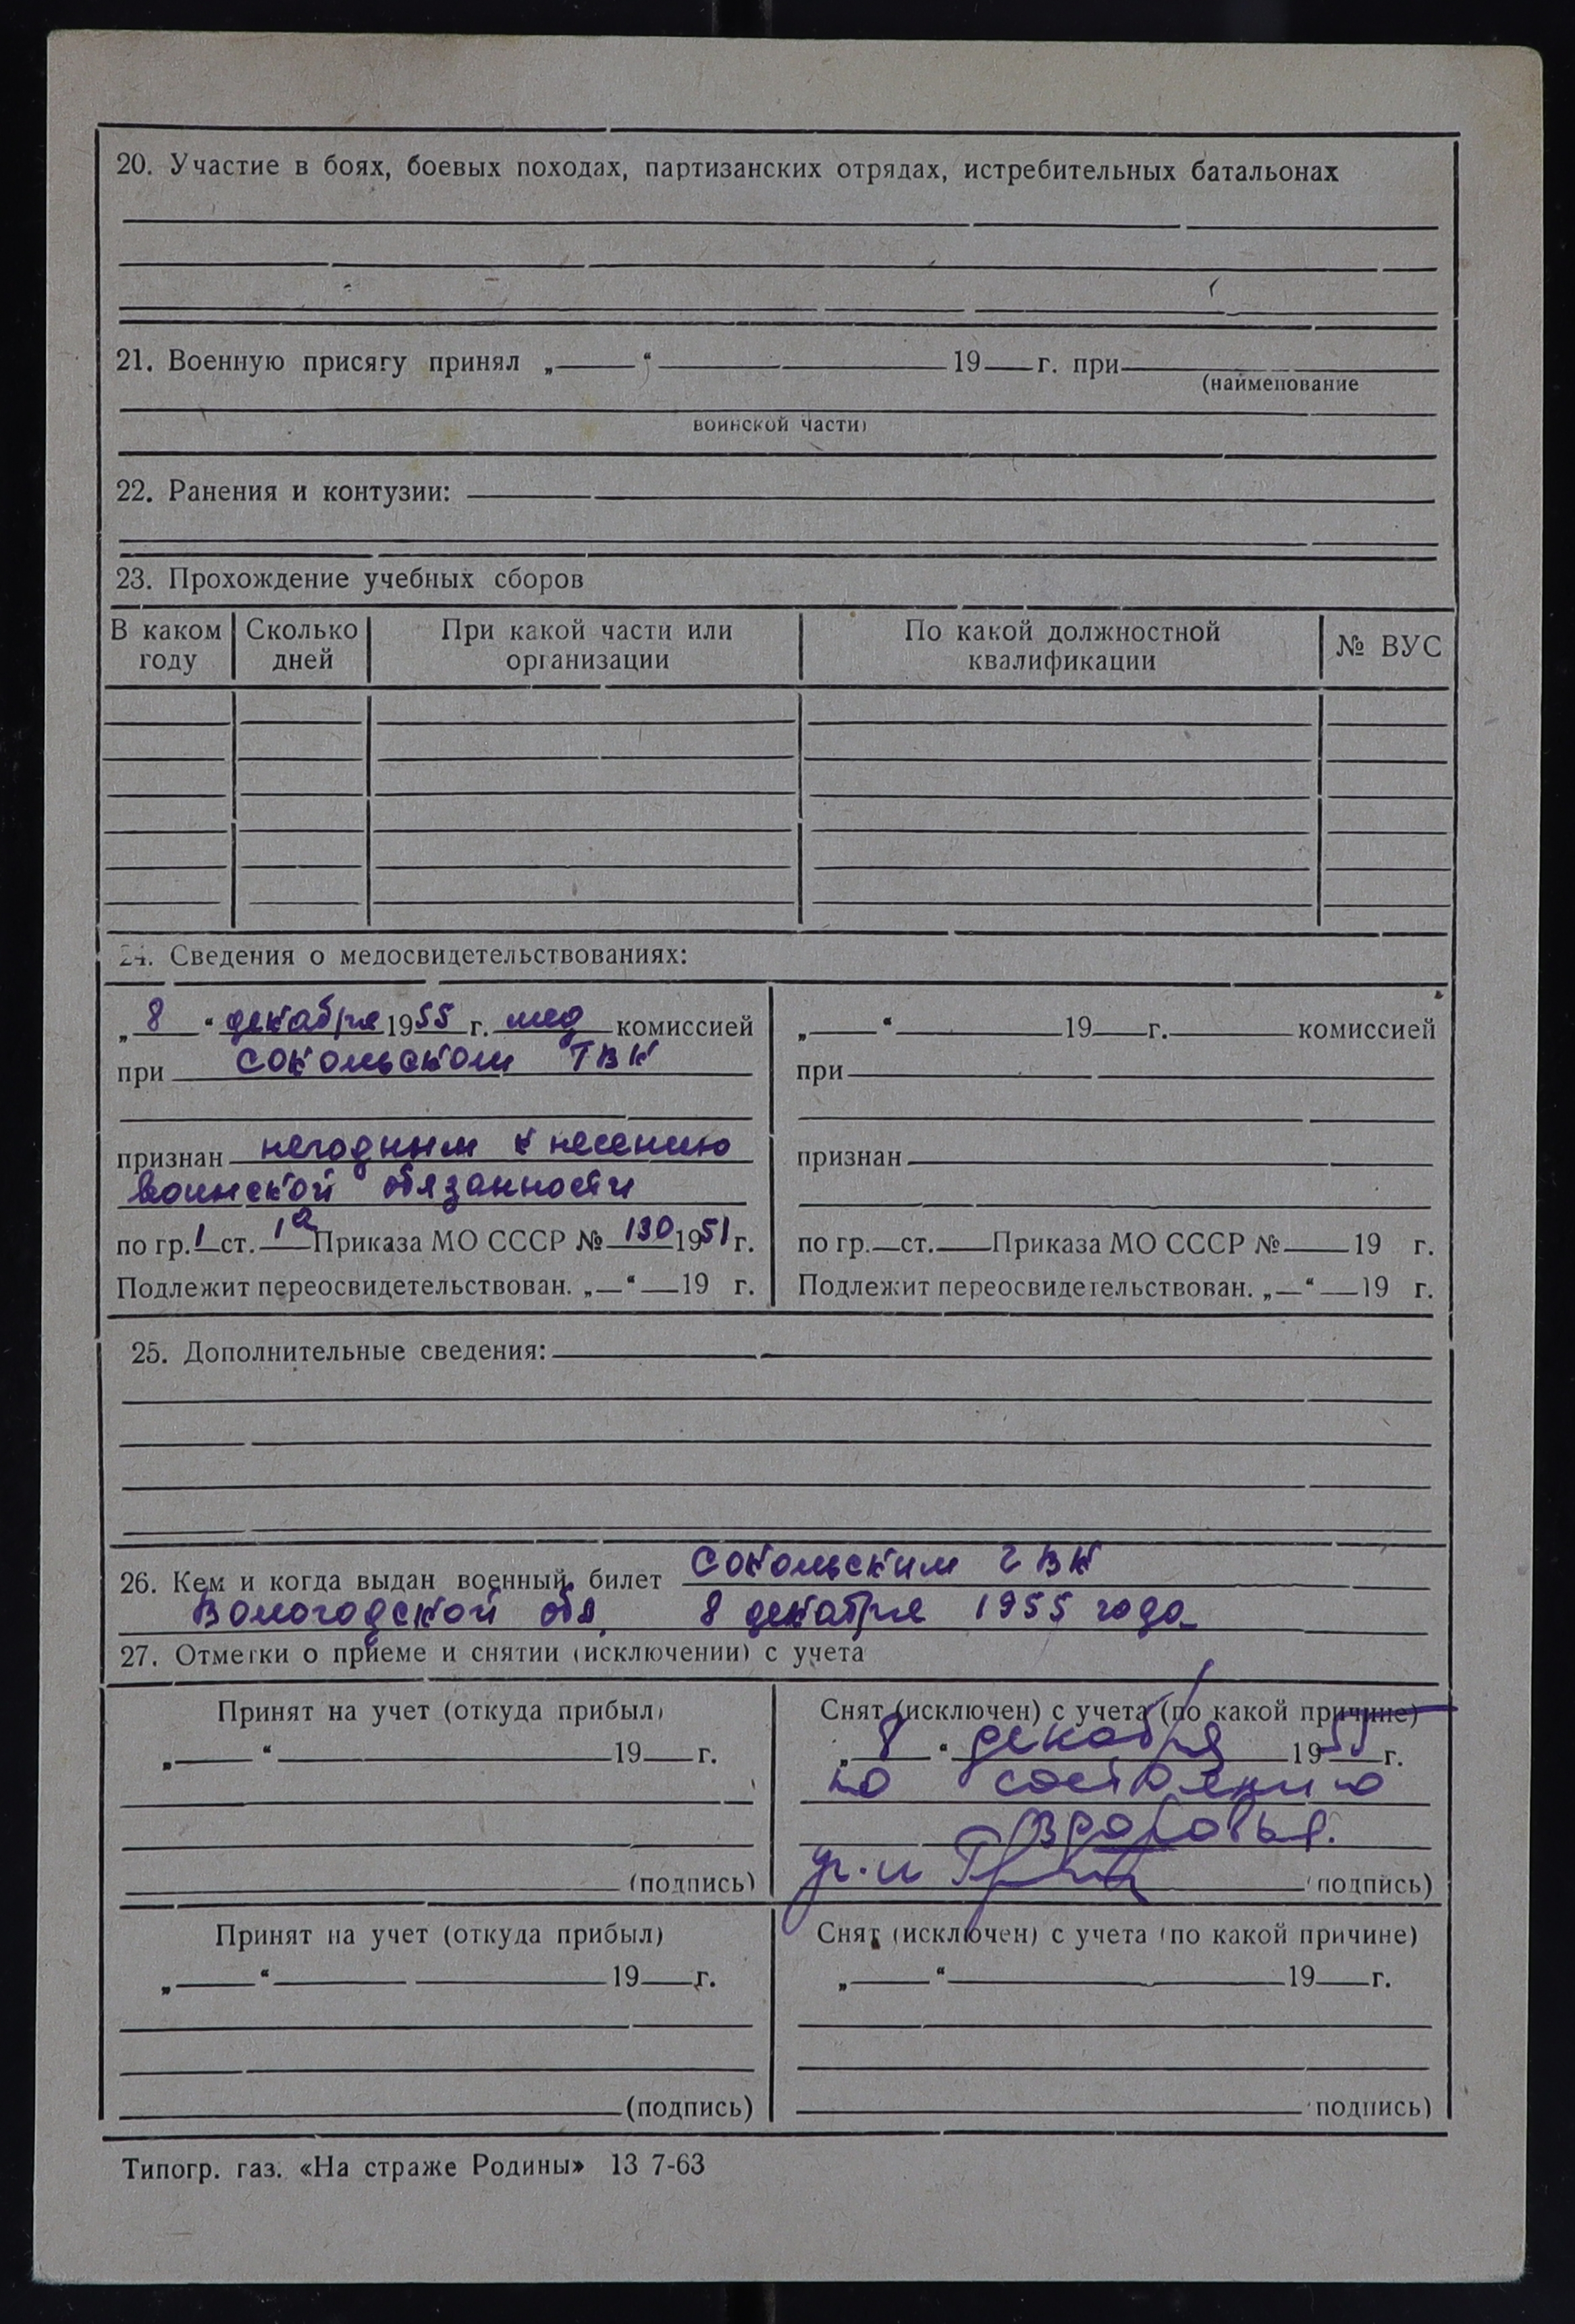 20. Участие в боях, боевых походах, партизанских отрядах, истребительных батальонах
21. Военную присягу принял „ “ 19 г. при
(наименование
воинской части)
22. Ранения и контузии:
23. Прохождение учебных сборов
В каком году Сколько дней При какой части или организации По какой должностной квалификации № ВУС
24. Сведения о медосвидетельствованиях:
„8“ декабря 1955 г. мед комиссией
при Сокольском ГВК
признан негодным к несению
воинской обязанности
по гр. 1 ст. 1а Приказа МО СССР № 130 1951 г.
Подлежит переосвидетельствован. „ “ 19 г.
„ “ 19 г. комиссией
при
признан
по гр. ст. Приказа МО СССР № 19 г.
Подлежит переосвидетельствован. „ “ 19 г.
25. Дополнительные сведения:
26. Кем и когда выдан военный билет Сокольским ГВК
Вологодской обл. 8 декабря 1955 года
27. Отметки о приеме и снятии (исключении) с учета
Принят на учет (откуда прибыл)
„ “ 19 г.
(подпись)
Снят (исключен) с учета (по какой причине)
„8“ декабря 1955 г.
по состоянию
здоровья.
(подпись)
Принят на учет (откуда прибыл)
„ “ 19 г.
(подпись)
Снят (исключен) с учета (по какой причине)
„ “ 19 г.
подпись)
Типогр. газ. «На страже Родины» 13 7-63